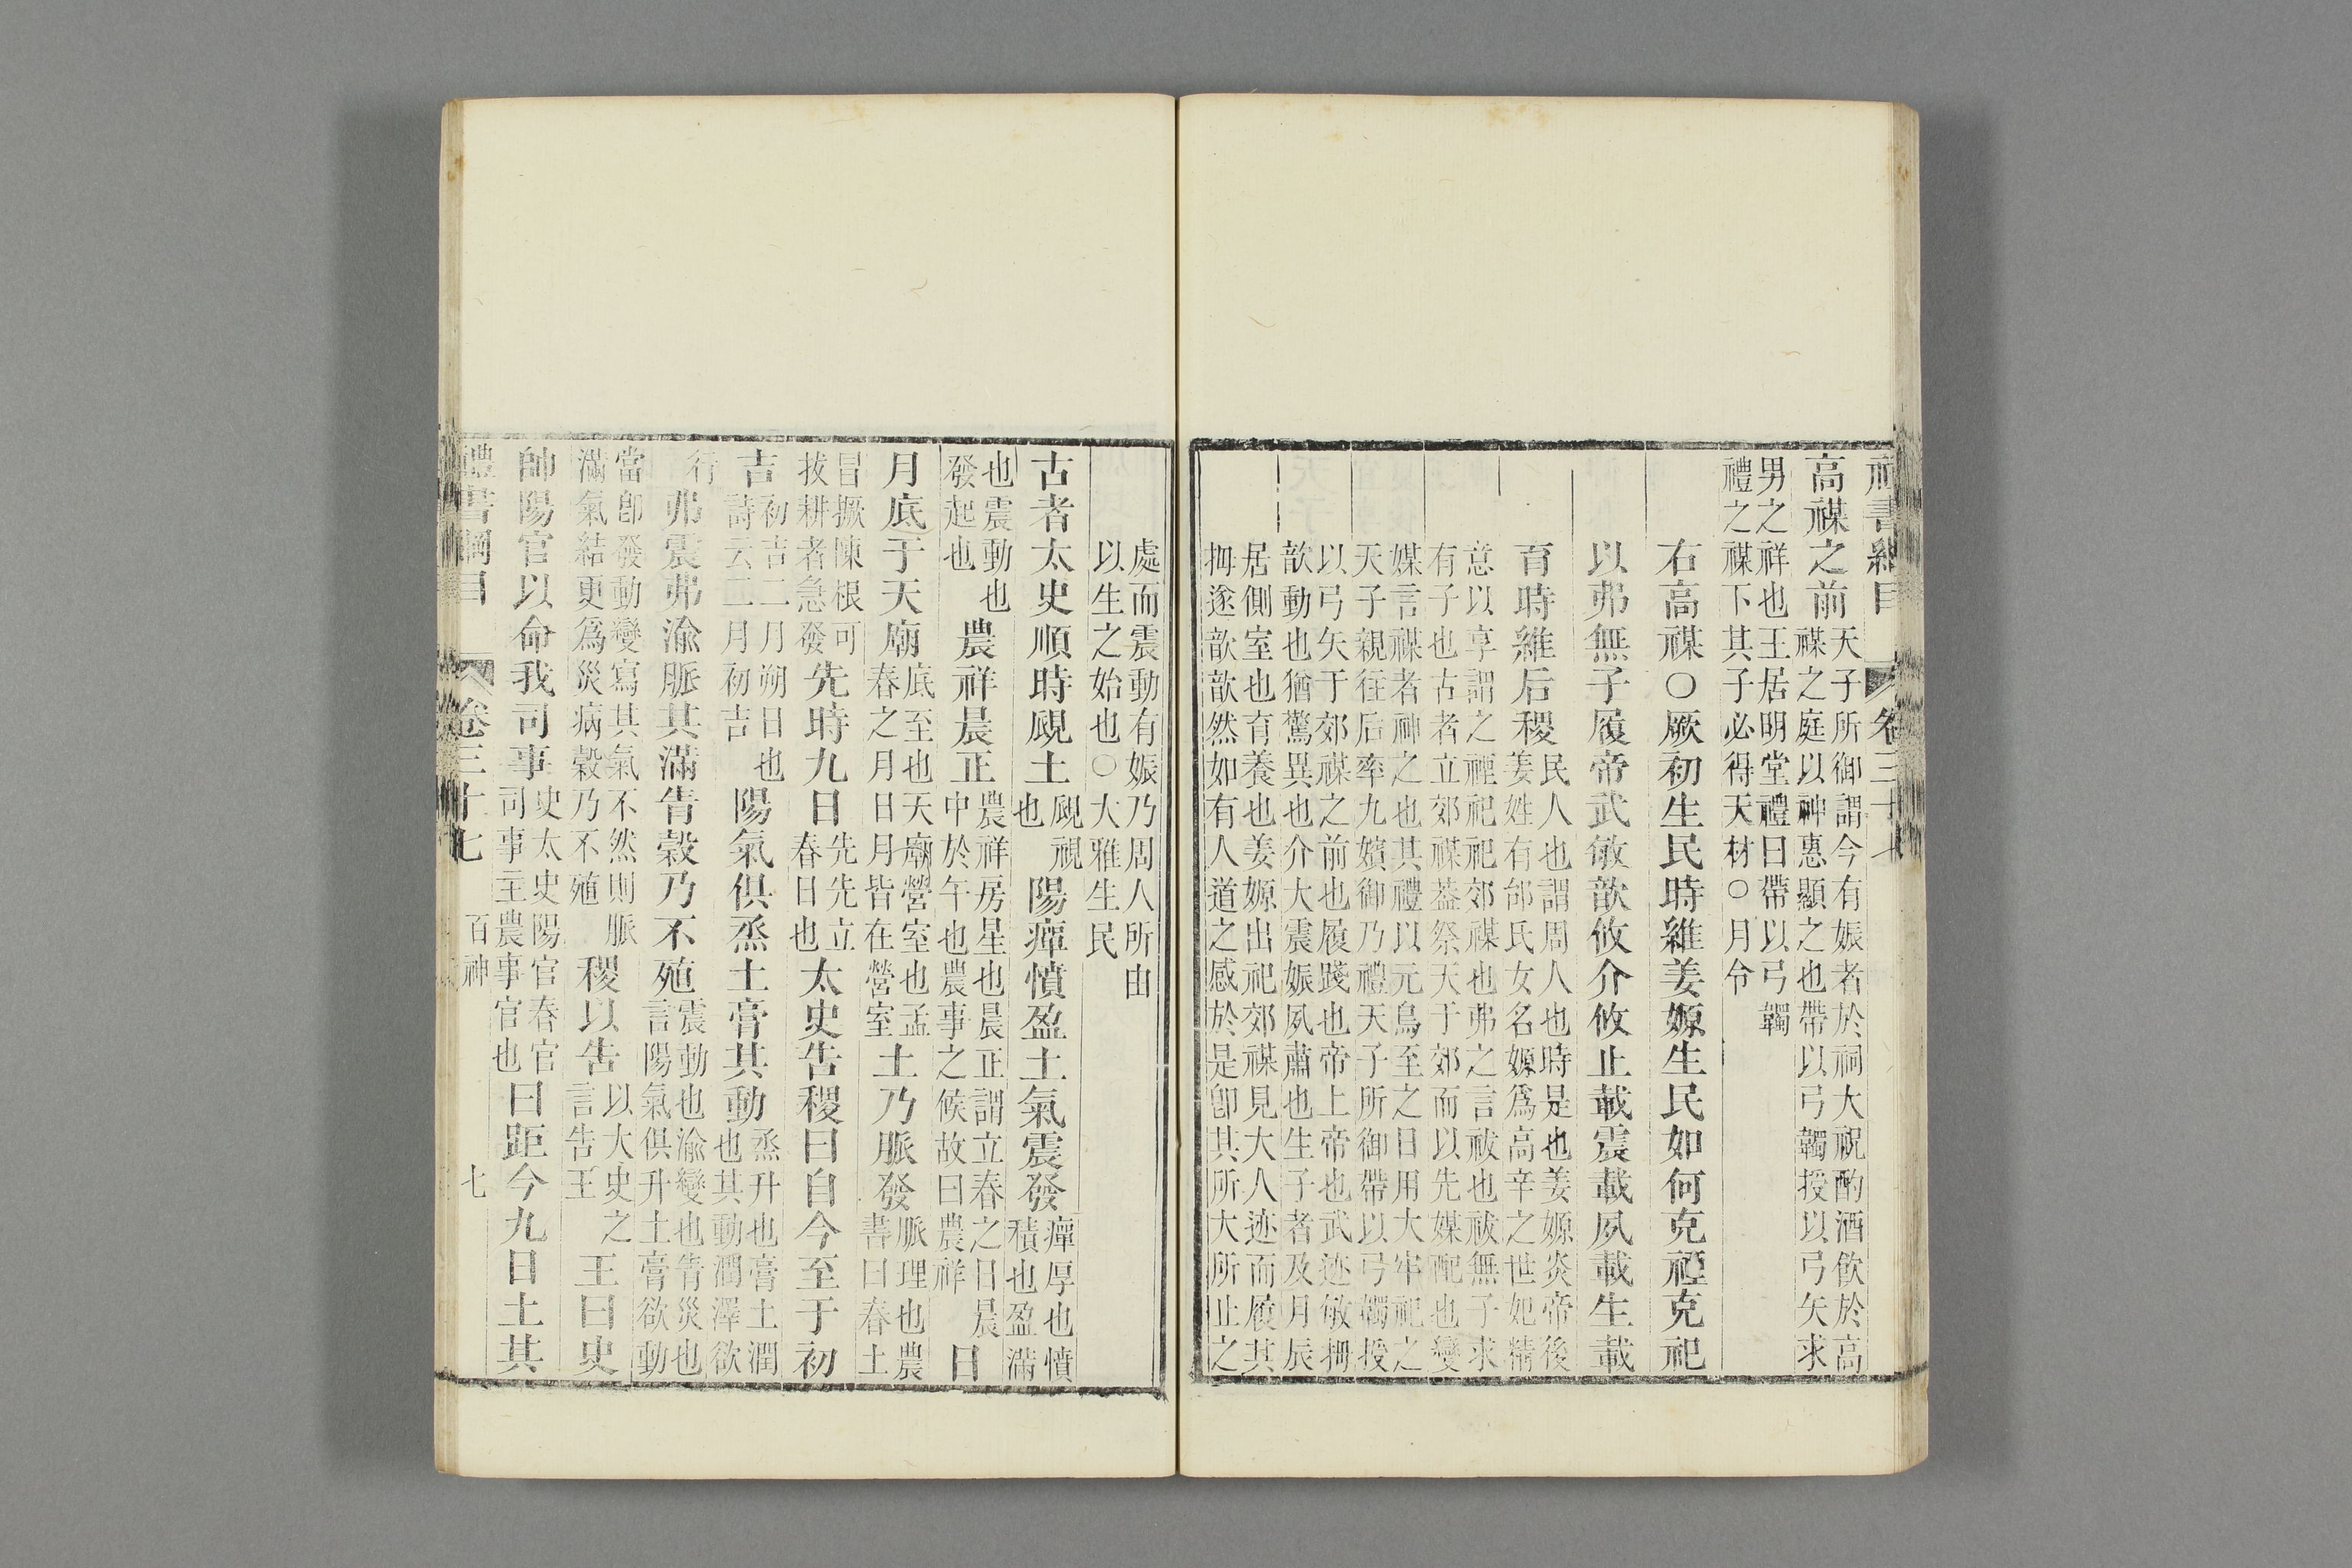 禮書綱目 卷三十七
高禖之前天子所御謂今有娠者於祠大祝酌酒飲於高禖之庭以神惠顯之也帶以弓韣授以弓矢求
男之祥也王居明堂禮曰帶以弓韣禮之禖下其子必得天材○月令
右高禖○厥初生民時維姜嫄生民如何克禋克祀
以弗無子履帝武敏歆攸介攸止載震載夙載生載
育時維后稷民人也謂周人也時是也姜嫄炎帝後姜姓有邰氏女名嫄爲高辛之世妃精
意以享謂之禋祀祀郊禖也弗之言祓也祓無子求有子也古者立郊禖葢祭天于郊而以先媒配也變
媒言禖者神之也其禮以元鳥至之日用大牢祀之天子親往后率九嬪御乃禮天子所御帶以弓韣授
以弓矢于郊禖之前也履踐也帝上帝也武迹敏拇歆動也猶驚異也介大震娠夙肅也生子者及月辰
居側室也育養也姜嫄出祀郊禖見大人迹而履其拇遂歆歆然如有人道之感於是卽其所大所止之
處而震動有娠乃周人所由以生之始也○大雅生民
古者太史順時覛土覛視也陽癉憤盈土氣震發癉厚也憤積也盈滿
也震動也發起也農祥晨正農祥房星也晨正謂立春之日晨中於午也農事之候故曰農祥日
月底于天廟底至也天廟營室也孟春之月日月皆在營室土乃脈發脈理也農書曰春土
冒橛陳根可拔耕者急發先時九日先先立春日也太史告稷曰自今至于初
吉初吉二月朔日也詩云二月初吉陽氣俱烝土膏其動烝升也膏土潤也其動潤澤欲
行弗震弗渝脈其滿眚穀乃不殖震動也渝變也眚災也言陽氣俱升土膏欲動
當卽發動變寫其氣不然則脈滿氣結更爲災病穀乃不殖稷以告以大史之言告王王曰史
帥陽官以命我司事史太史陽官春官司事主農事官也曰距今九日土其
禮書綱目 卷三十七 百神 七